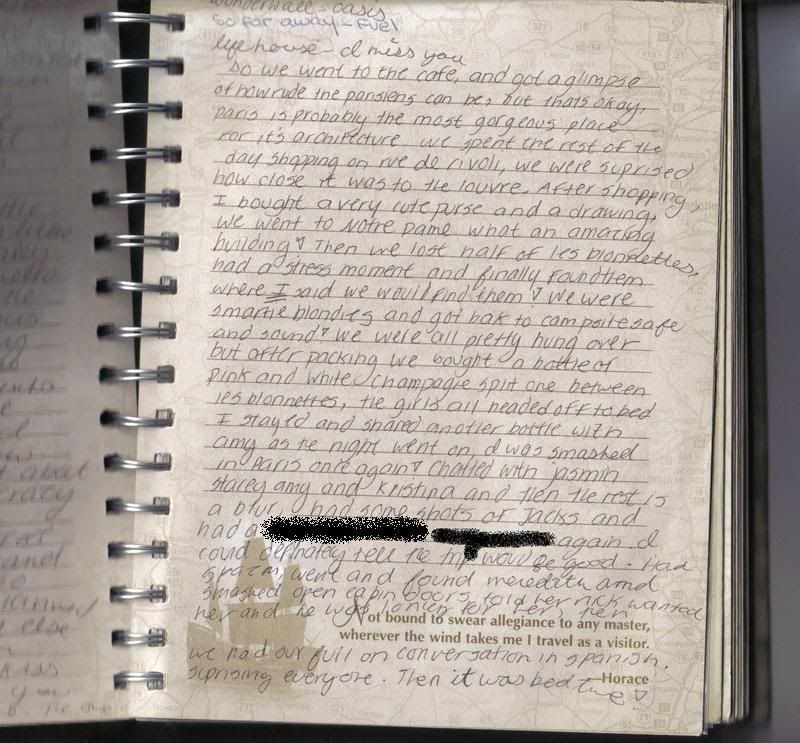 wonderwall - oasis
so far away - Fuel
life house - I miss you
So we went to the cafe, and got a glimpse
of how rude the parisiens can be, but thats okay,
paris is probably the most gorgeous place
for it's architecture we spent the rest of the
day shopping on rue de rivoli, we were suprised
how close it was to the louvre. After shopping,
I bought a very cute purse and a drawing,
we went to Notre Dame what an amazing
building! Then we lost half of les blonnettes,
had a stress moment and finally found them
where I said we would find them! We were
smartie blondies and got bak to campsite safe
and sound! We were all pretty hung over
but after packing we bought a bottle of
pink and white champagne split one between
les blonnettes, the girls all headed off to bed
I stayed and shared another bottle with
amy as the night went on, I was smashed
in Paris once again! Chatted with jasmin
stacey amy and kristina and then the rest is
a blur, I had some shots of Jacks and
had a again. I
could definately tell the trip would be good. Had
went and found meredith and
smashed open cabin doors told her nick wanted
her and he was for her, then
Not bound to swear allegiance to any master,
wherever the wind takes me I travel as a visitor.
we had our full on conversation in spanish.
—Horace
suprising everyone. Then it was bed time!